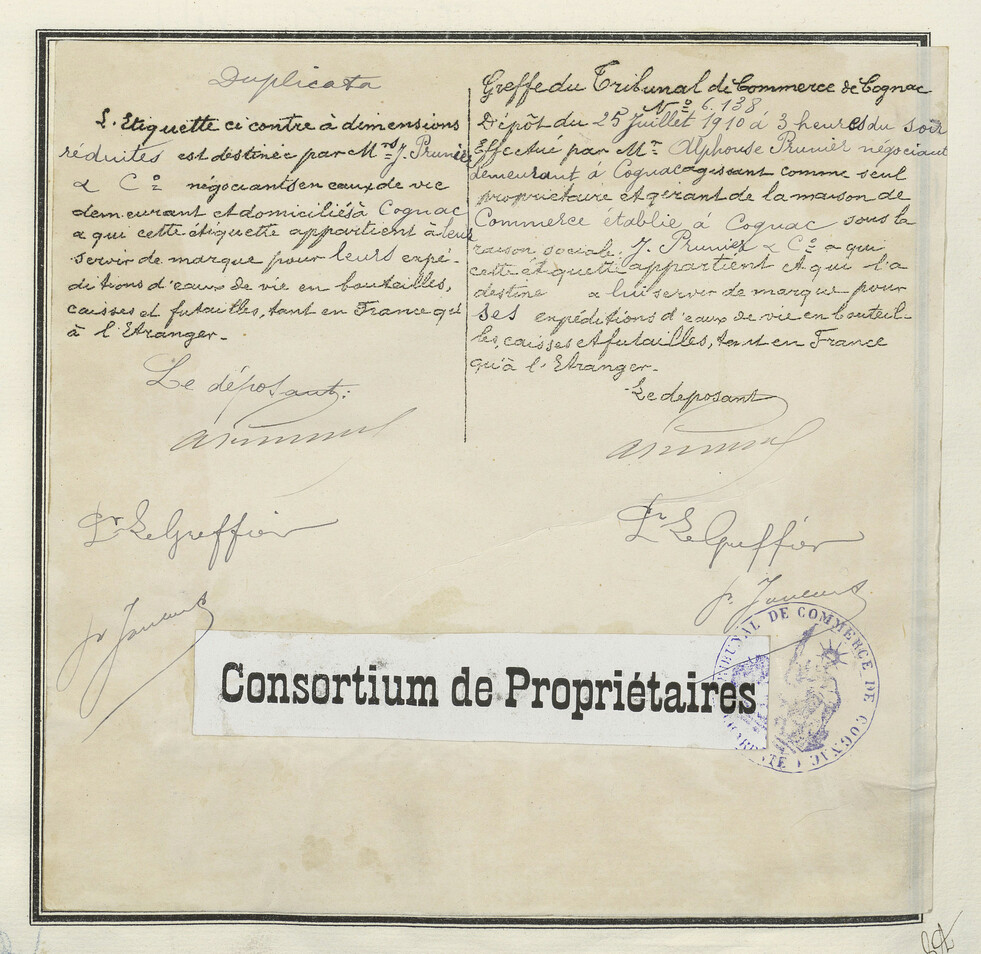 Duplicata
L'Etiquette ci contre à dimensions
réduites est destinée par Mrs J. Prunier
& Cie négociants en eaux de vie
demeurant et domiciliés à Cognac
a qui cette étiquette appartient à leur
servir de marque pour leurs expé-
ditions d'eaux de vie en bouteilles,
caisses et futailles, tant en France qu'
à l'Etranger.
Le déposant:
Pr Le Greffier
Greffe du Tribunal de Commerce de Cognac
No 6.138
Dépôt du 25 Juillet 1910 à 3 heures du soir
Effectué par Mr Alphonse Prunier négociant
demeurant à Cognac agissant comme seul
propriétaire et gérant de la maison de
Commerce établie à Cognac sous la
raison sociale J. Prunier & Cie a qui
cette étiquette appartient et qui l'a
destine a lui servir de marque pour
ses expéditions d'eaux de vie en bouteil-
les, caisses et futailles, tant en France
qu'à l'Etranger.
Le deposant
Pr Le Greffier
TRIBUNAL DE COMMERCE DE COGNAC
Consortium de Propriétaires